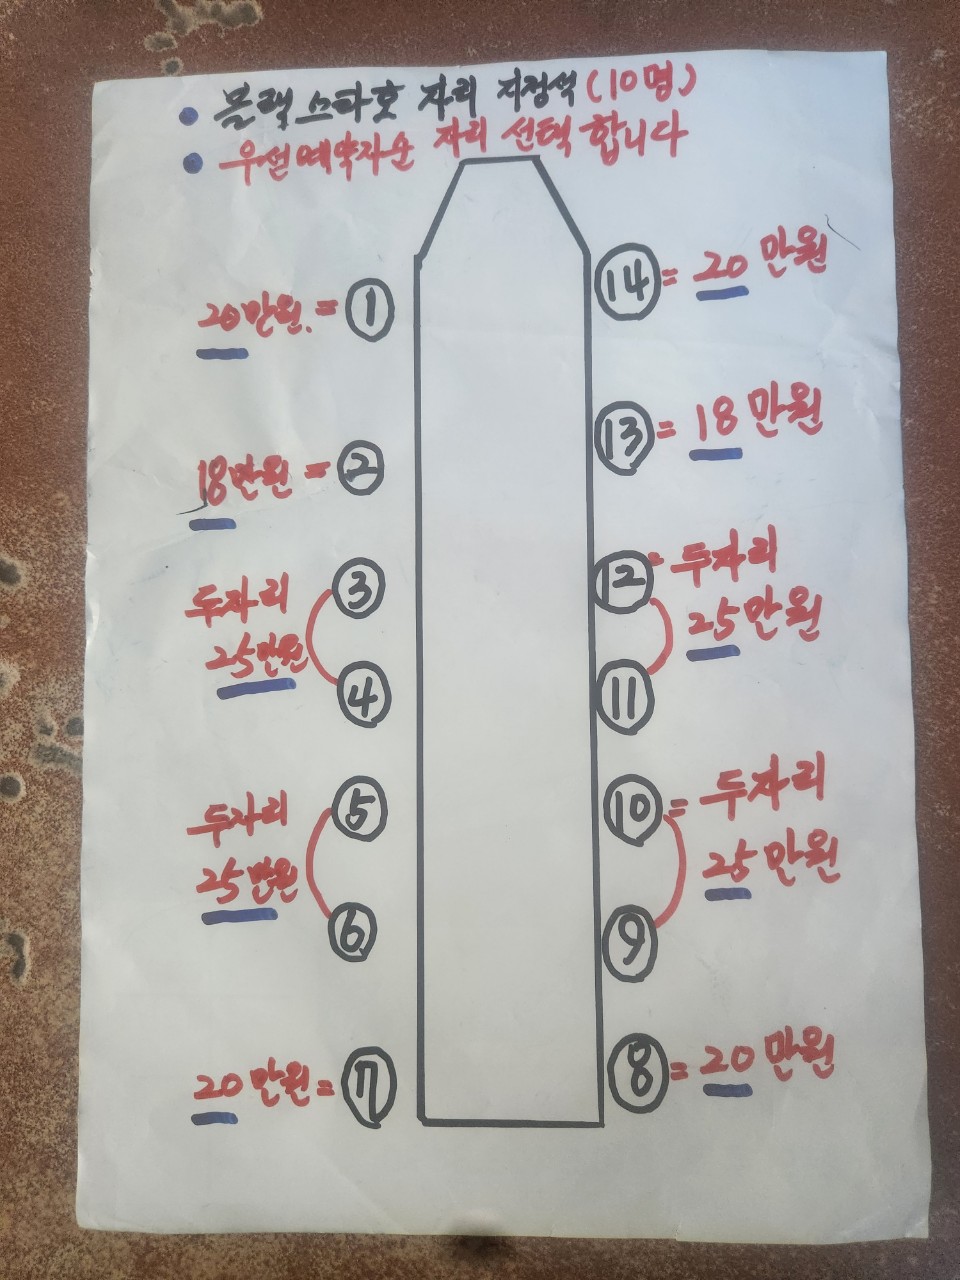 ● 블랙스타호 자리 지정석 (10명)
● 우선예약자순 자리 선택 합니다
20만원. = ①
⑭ = 20만원
18만원 = ②
⑬ = 18만원
③ 두자리
④ 25만원
⑫ = 두자리
⑪ 25만원
⑤ 두자리
⑥ 25만원
⑩ = 두자리
⑨ 25만원
20만원 = ⑦
⑧ = 20만원